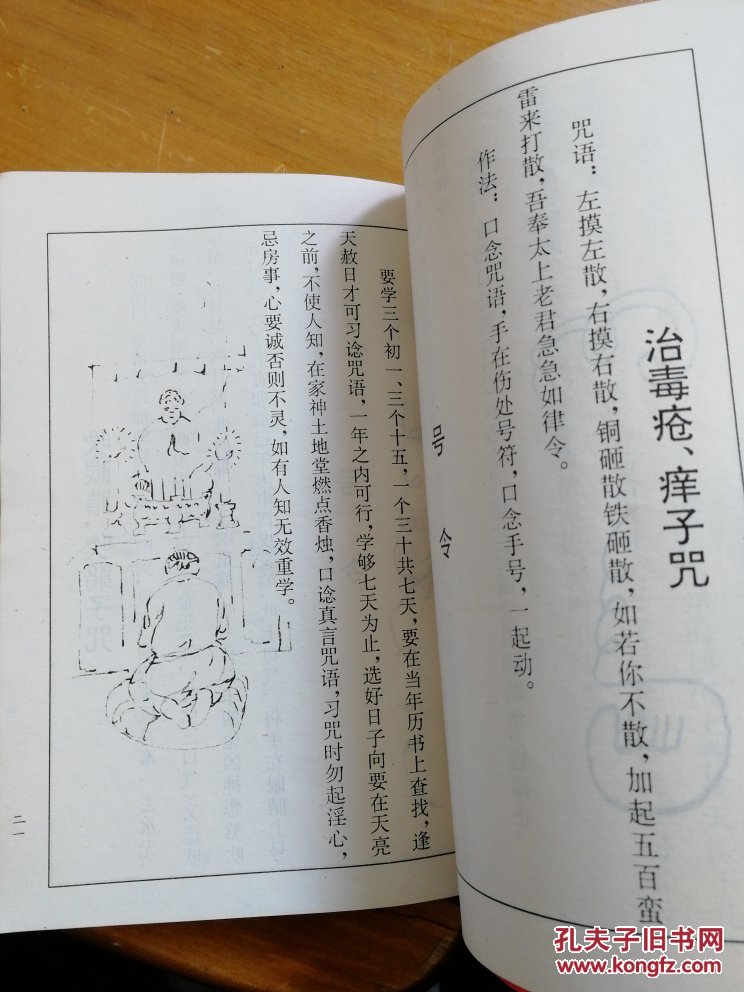 治毒疮、痒子咒
咒语：左摸左散，右摸右散，铜砸散铁砸散，如若你不散，加起五百蛮
雷来打散，吾奉太上老君急急如律令。
作法：口念咒语，手在伤处号符，口念手号，一起动。
号
令
要学三个初一、三个十五，一个三十共七天，要在当年历书上查找，逢
天赦日才可习谂咒语，一年之内可行，学够七天为止，选好日子向要在天亮
之前，不使人知，在家神土地堂燃点香烛，口谂真言咒语，习咒时勿起淫心，
忌房事，心要诚否则不灵，如有人知无效重学。
二一
孔夫子旧书网
WWW.KONGFZ.COM